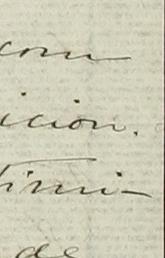 com
icion.
timi-
de